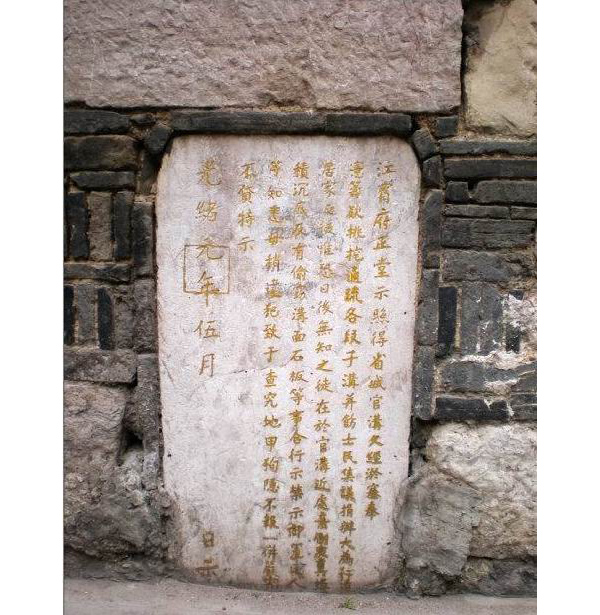 江甯府正堂示照得省城官溝久經淤塞奉
憲籌款挑挖通疏各段干溝并飭士民集議捐辦大為行
居家無後惟恐日後無知之徒在於官溝近處傾
積沉灰及有偷竊溝面石板等事合行示禁示仰軍民人
等知悉毋稍違犯致干查究地甲徇隱不報一併
不貸特示
光緒元年伍月
日示